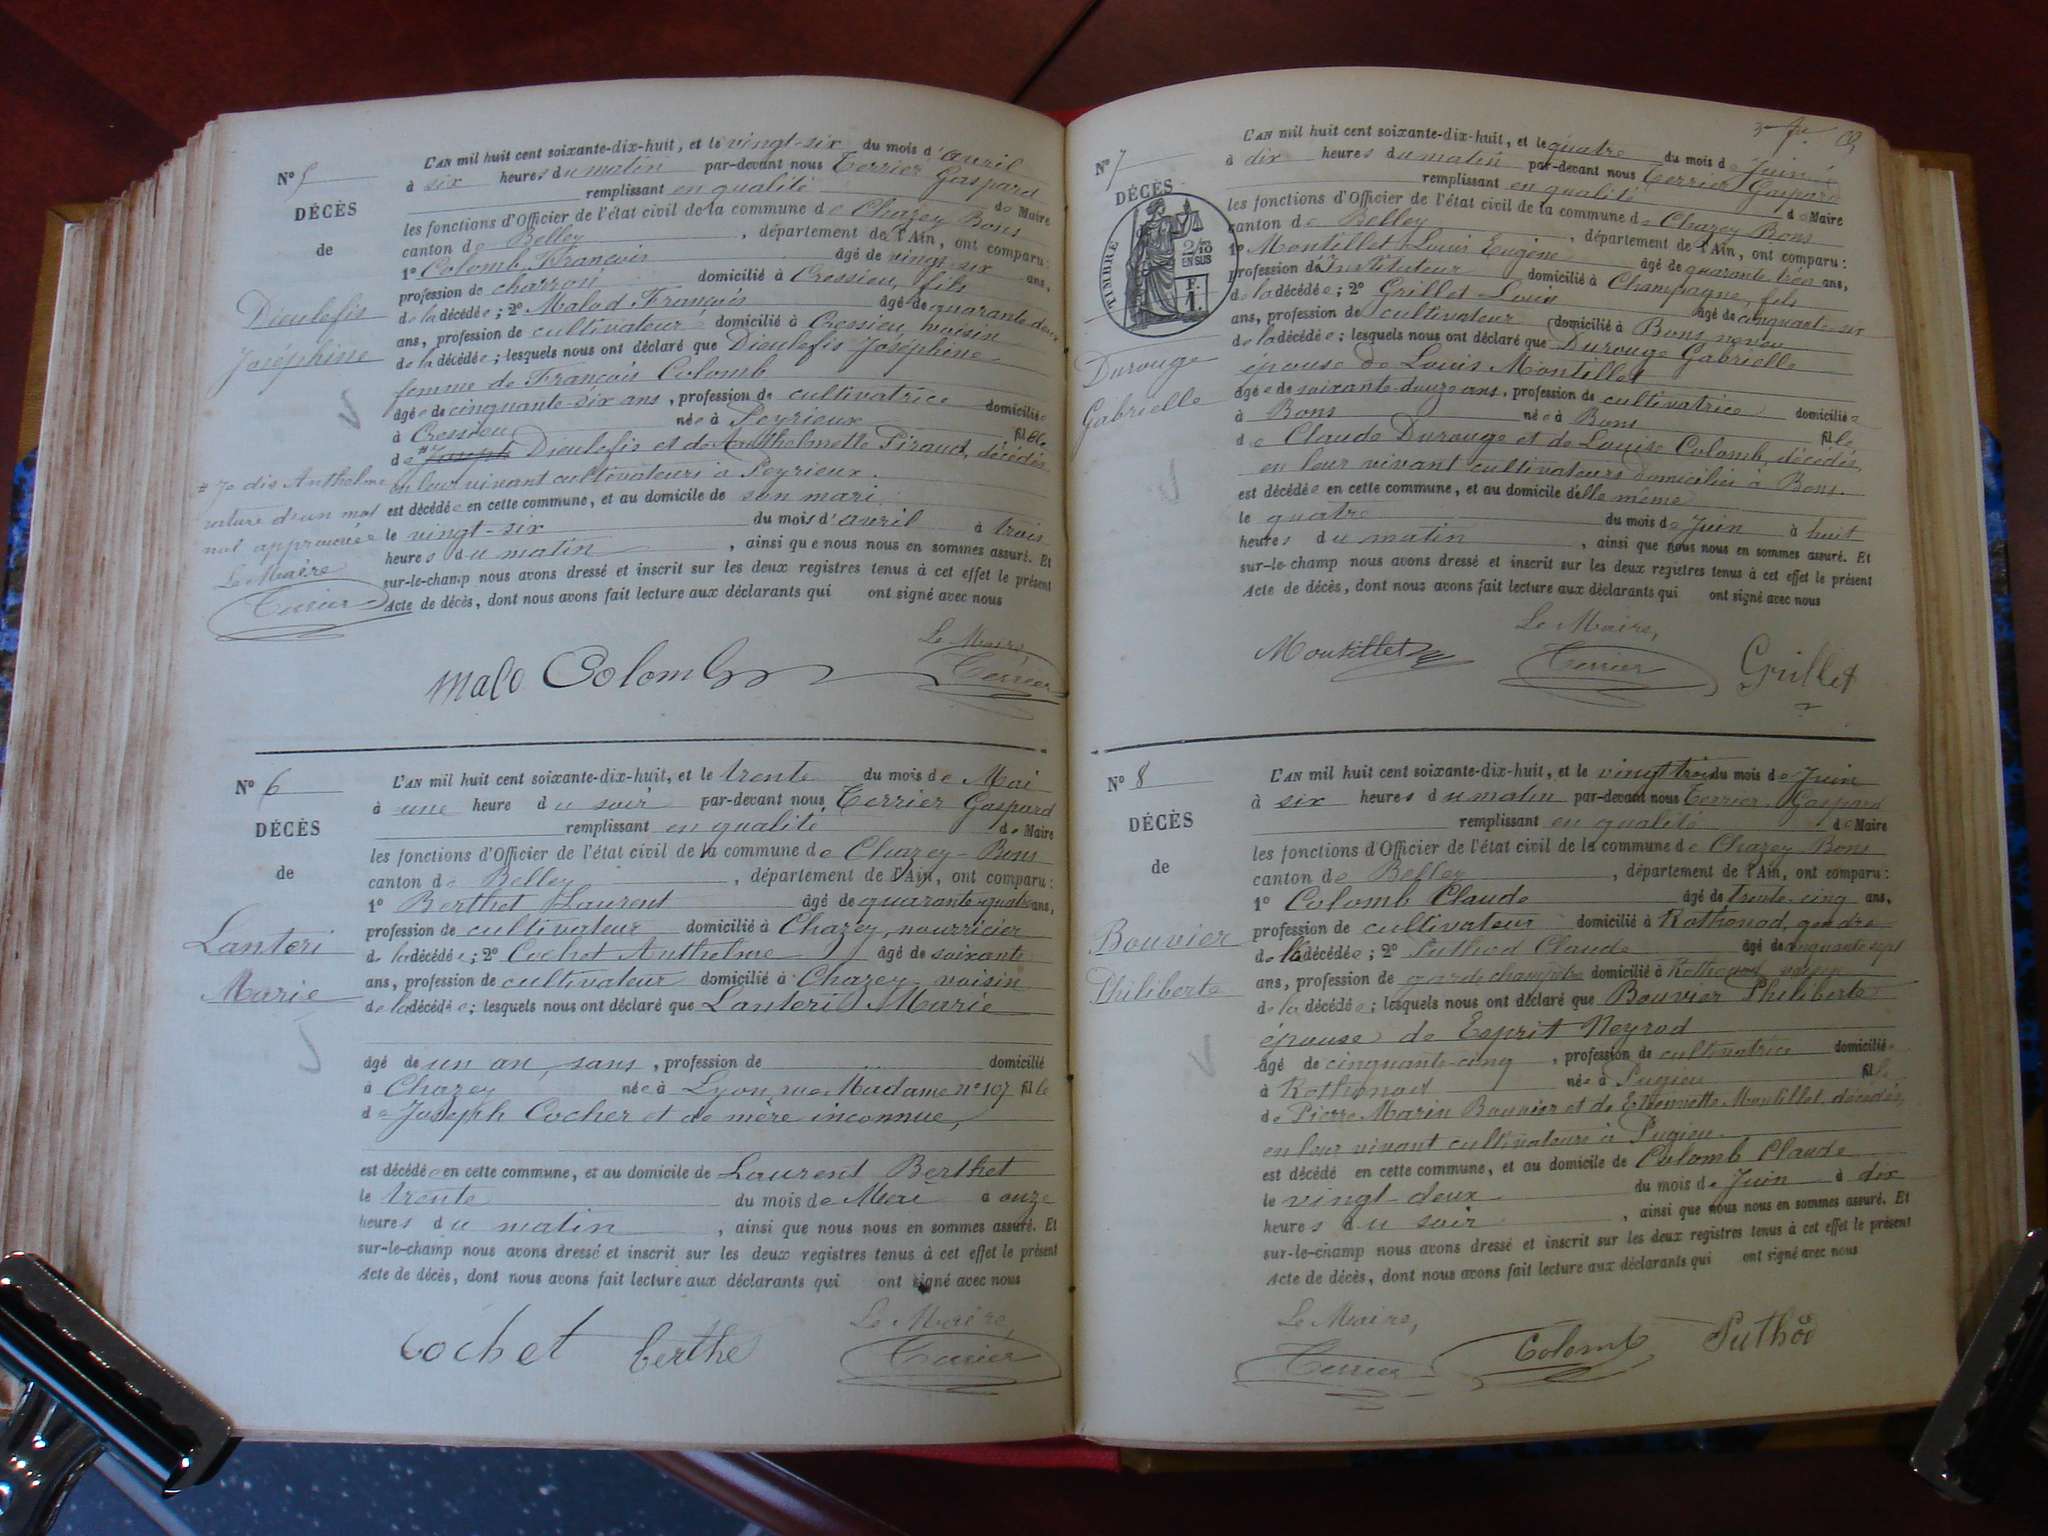 N° 5
DÉCÈS
de
Dieulefis
Joséphine
L'AN mil huit cent soixante-dix-huit, et le vingt-six du mois d'avril
à six heures du matin par-devant nous Terrier Gaspard
remplissant en qualité de Maire
les fonctions d'Officier de l'état civil de la commune de Chazey Bons
canton de Belley, département de l'Ain, ont comparu:
1° Colomb François âgé de vingt-six ans,
profession de charron domicilié à Cressieu, fils
de la décédée; 2° Malod François âgé de quarante-deux
ans, profession de cultivateur domicilié à Cressieu, voisin
de la décédée; lesquels nous ont déclaré que Dieulefis Joséphine
femme de François Colomb
âgée de cinquante-six ans, profession de cultivatrice domiciliée
à Cressieu née à Peyrieux fille
de # Joseph Dieulefis et de Anthelmette Piraud, décédés
en leur vivant cultivateurs à Peyrieux.
est décédée en cette commune, et au domicile de son mari
le vingt-six du mois d'avril à trois
heures du matin, ainsi que nous nous en sommes assuré. Et
sur-le-champ nous avons dressé et inscrit sur les deux registres tenus à cet effet le présent
Acte de décès, dont nous avons fait lecture aux déclarants qui ont signé avec nous
# Je dis Anthelme
rature d'un mot
nul approuvée
Le Maire
Terrier
Le Maire,
Malo Colomb Terrier
N° 6
DÉCÈS
de
Lanteri
Marie
L'AN mil huit cent soixante-dix-huit, et le trente du mois de Mai
à une heure du soir par-devant nous Terrier Gaspard
remplissant en qualité de Maire
les fonctions d'Officier de l'état civil de la commune de Chazey-Bons
canton de Belley, département de l'Ain, ont comparu:
1° Berthet Laurent âgé de quarante-quatre ans,
profession de cultivateur domicilié à Chazey, nourricier
de la décédée; 2° Cochet Anthelme âgé de soixante
ans, profession de cultivateur domicilié à Chazey voisin
de la décédée; lesquels nous ont déclaré que Lanteri Marie
âgé de un an, sans, profession de domicilié
à Chazey née à Lyon, rue Madame n° 107 fille
de Joseph Cocher et de mère inconnue,
est décédée en cette commune, et au domicile de Laurent Berthet
le trente du mois de Mai à onze
heures du matin, ainsi que nous nous en sommes assuré. Et
sur-le-champ nous avons dressé et inscrit sur les deux registres tenus à cet effet le présent
Acte de décès, dont nous avons fait lecture aux déclarants qui ont signé avec nous
Le Maire,
Cochet berthe Terrier
N° 7
DÉCÈS
TIMBRE
2/10
EN SUS
F.
1.
Durouge
Gabrielle
L'AN mil huit cent soixante-dix-huit, et le quatre du mois de Juin
à dix heures du matin par-devant nous Terrier Gaspard
remplissant en qualité de Maire
les fonctions d'Officier de l'état civil de la commune de Chazey Bons
canton de Belley, département de l'Ain, ont comparu:
1° Montillet Louis Eugène âgé de quarante trois ans,
profession d'Instituteur domicilié à Champagne, fils
de la décédée; 2° Grillet Louis âgé de cinquante-six
ans, profession de cultivateur domicilié à Bons neveu
de la décédée; lesquels nous ont déclaré que Durouge Gabrielle
épouse de Louis Montillet
âgée de soixante-douze ans, profession de cultivatrice domiciliée
à Bons née à Bons fille
de Claude Durouge et de Louise Colomb, décédés,
en leur vivant cultivateurs domiciliés à Bons.
est décédée en cette commune, et au domicile d'elle même
le quatre du mois de Juin à huit
heures du matin, ainsi que nous nous en sommes assuré. Et
sur-le-champ nous avons dressé et inscrit sur les deux registres tenus à cet effet le présent
Acte de décès, dont nous avons fait lecture aux déclarants qui ont signé avec nous
Le Maire,
Montillet Terrier Grillet
N° 8
DÉCÈS
de
Bouvier
Philiberte
L'AN mil huit cent soixante-dix-huit, et le vingt trois du mois de Juin
à six heures du matin par-devant nous Terrier Gaspard
remplissant en qualité de Maire
les fonctions d'Officier de l'état civil de la commune de Chazey Bons
canton de Belley, département de l'Ain, ont comparu:
1° Colomb Claude âgé de trente-cinq ans,
profession de cultivateur domicilié à Rothonod, gendre
de la décédée; 2° Puthod Claude âgé de cinquante sept
ans, profession de garde champêtre domicilié à Rothonod voisin
de la décédée; lesquels nous ont déclaré que Bouvier Philiberte
épouse de Esprit Neyrod
âgé de cinquante-cinq, profession de cultivatrice domiciliée
à Rothonod née à Pugieu fille
de Pierre Marin Bouvier et de Etiennette Montillet, décédés,
en leur vivant cultivateurs à Pugieu.
est décédé en cette commune, et au domicile de Colomb Claude
le vingt-deux du mois de Juin à dix
heures du soir, ainsi que nous nous en sommes assuré. Et
sur-le-champ nous avons dressé et inscrit sur les deux registres tenus à cet effet le présent
Acte de décès, dont nous avons fait lecture aux déclarants qui ont signé avec nous
Le Maire,
Terrier Colomb Puthod